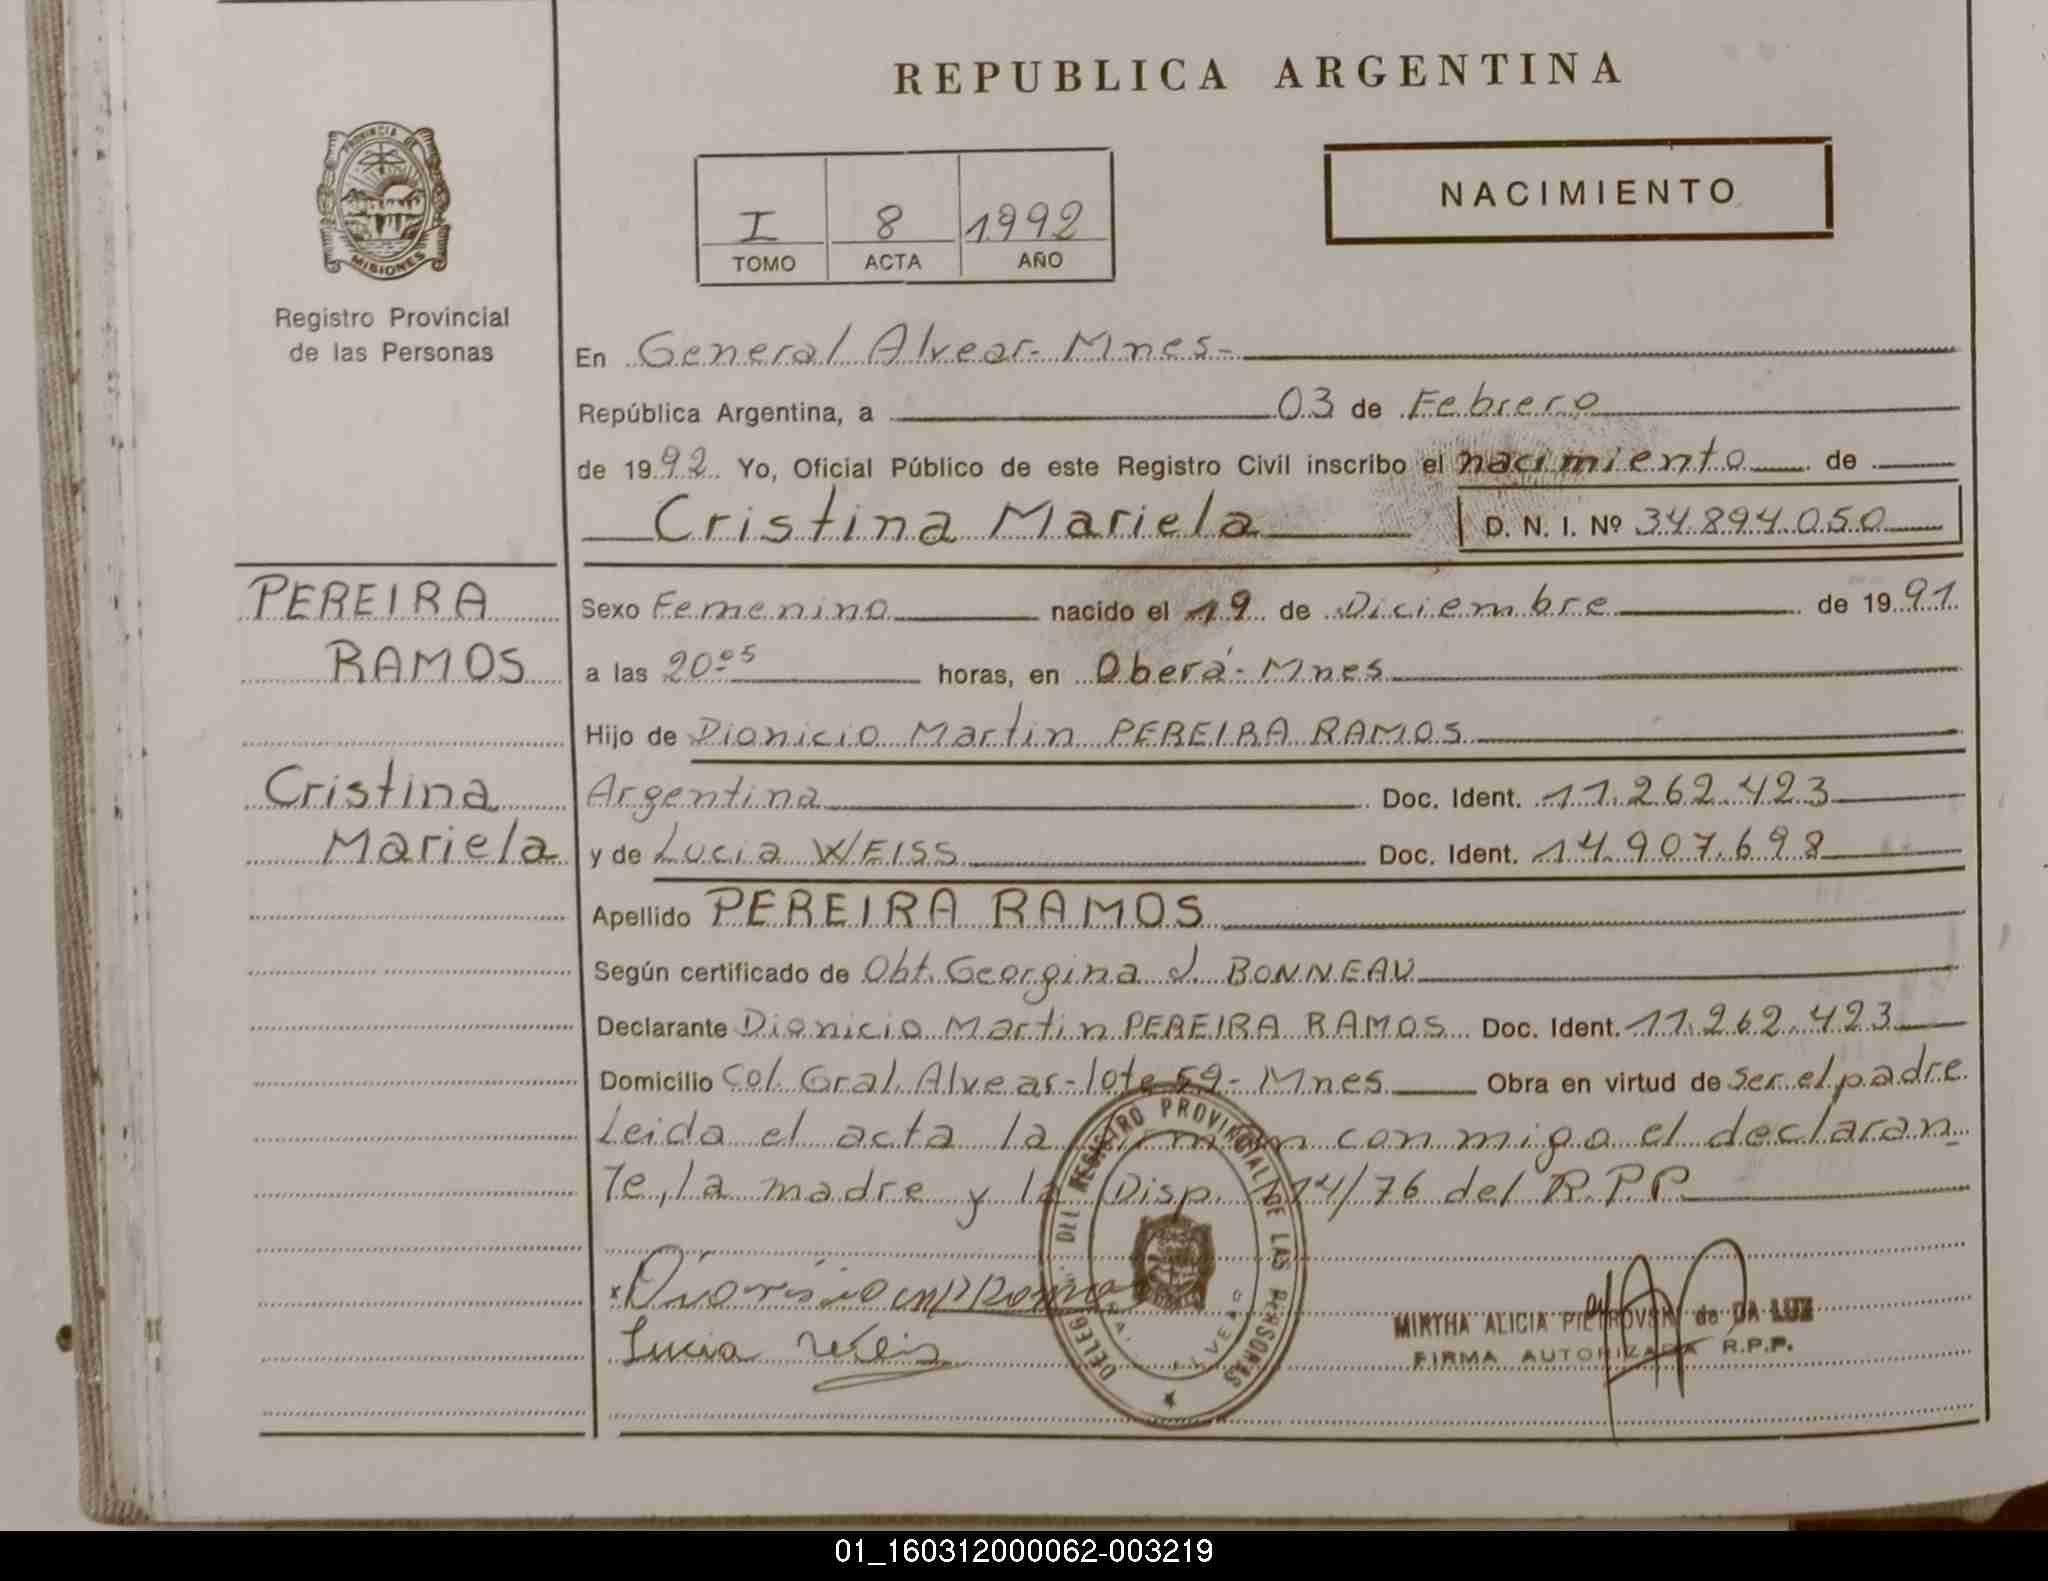 REPUBLICA ARGENTINA
PROVINCIA DE
MISIONES
Registro Provincial
de las Personas
I 8 1992
TOMO ACTA AÑO
NACIMIENTO
En General Alvear- Mnes-
República Argentina, a 03 de Febrero
de 1992 Yo, Oficial Público de este Registro Civil inscribo el nacimiento de
Cristina Mariela D. N. I. Nº 34.894.050
PEREIRA
RAMOS
Cristina
Mariela
Sexo Femenino nacido el 19 de Diciembre de 1991
a las 20⁰⁵ horas, en Oberá-Mnes
Hijo de Dionicio Martin PEREIRA RAMOS
Argentina Doc. Ident. 11.262.423
y de Lucia WEISS Doc. Ident. 14.907.698
Apellido PEREIRA RAMOS
Según certificado de Obt. Georgina J. BONNEAU
Declarante Dionicio Martin PEREIRA RAMOS Doc. Ident. 11.262.423
Domicilio Col. Gral. Alvear-lote 59- Mnes Obra en virtud de ser el padre
Leida el acta la firman conmigo el declaran-
te, la madre y la Disp. 14/76 del R.P.P
DELEG. DEL REGISTRO PROVINCIAL DE LAS PERSONAS
Lucia Weis
MIRTHA ALICIA PIETROVSKI de DA LUZ
FIRMA AUTORIZADA R.P.P.
01_160312000062-003219